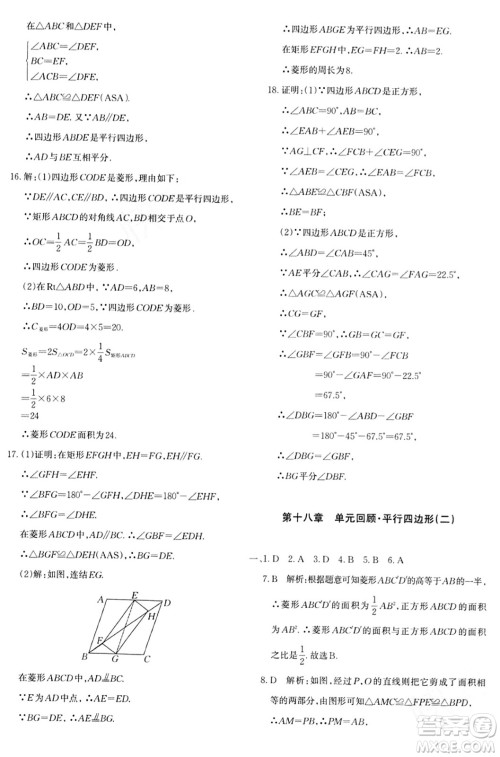 在△ABC和△DEF中,
∠ABC=∠DEF,
BC=EF,
∠ACB=∠DFE
∴△ABC≌△DEF(ASA).
∴AB=DE.又∵AB∥DE,
∴四边形ABDE是平行四边形,
∴AD与BE互相平分.
16.解:(1)四边形CODE是菱形,理由如下:
∵DE∥AC,CE∥BD,∴四边形CODE是平行四边形,
∵矩形ABCD的对角线AC,BD相交于点O,
∴OC=1/2AC=1/2BD=OD,
∴四边形CODE为菱形.
(2)在Rt△ABD中,∵AB=6,AD=8,
∴BD=10,∴OD=5,∵四边形CODE为菱形,
∴C菱形=4OD=4×5=20.
S菱形=2S△OCD=2×1/4S矩形ABCD
=1/2×AD×AB
=1/2×6×8
=24
∴菱形CODE面积为24.
17.(1)证明:在矩形EFGH中,EH=FG,EH∥FG,
∴∠GFH=∠EHF,
∵∠BFG=180°-∠GFH,∠DHE=180°-∠EHF,
∴∠BFG=∠DHE,
在菱形ABCD中,AD∥BC,
∴∠GBF=∠EDH,
∴△BGF≌△DEH(AAS),
∴BG=DE;
(2)解:如图,连接EG,
A E D
H
F
B G C
在菱形ABCD中,AD⫽BC,
∵E为AD中点,∴AE=ED,
∵BG=DE,∴AE⫽BG,
∴四边形ABGE为平行四边形,∴AB=EG,
在矩形EFGH中,EG=FH=2,∴AB=2,
∴菱形的周长为8.
18.证明:(1)∵四边形ABCD是正方形,
∴∠ABC=90°,∴∠ABF=90°,
∵AG⊥CF,∴∠AGF=90°,
∵∠CFB+∠BCF=90°,
∠CFB+∠FAG=90°,
∴∠BAE=∠BCF;
(2)∵四边形ABCD是正方形,
∴∠ABD=∠CAB=45°,
∵∠CAG=∠FAG=22.5°,
∴CG=GF,
∵∠CBF=90°,∴GB=GF,
∴∠GBF=∠GFB=90°-∠FAG=90°-22.5°
=67.5°,
∴∠DBG=180°-∠ABD-∠GBF
=180°-45°-67.5°
=67.5°.
∴∠DBG=∠GBF.
第十八章 单元回顾·平行四边形(二)
一、1.D 2.A 3.D 4.B 5.B 6.A
7.B 解析:根据题意可知菱形ABC′D′的高等于AB的一半,
∴菱形ABC′D′的面积为1/2AB²,正方形ABCD的面积
为AB².∴菱形ABC′D′的面积与正方形ABCD的面积之
比是1/2.故选B.
8.D 解析:经过P,O的直线则把它剪成了面积相
等的两部分,由图形可知△AMC≌△FPE≌△BPD,
∴AM=PB,∴PM=AB,